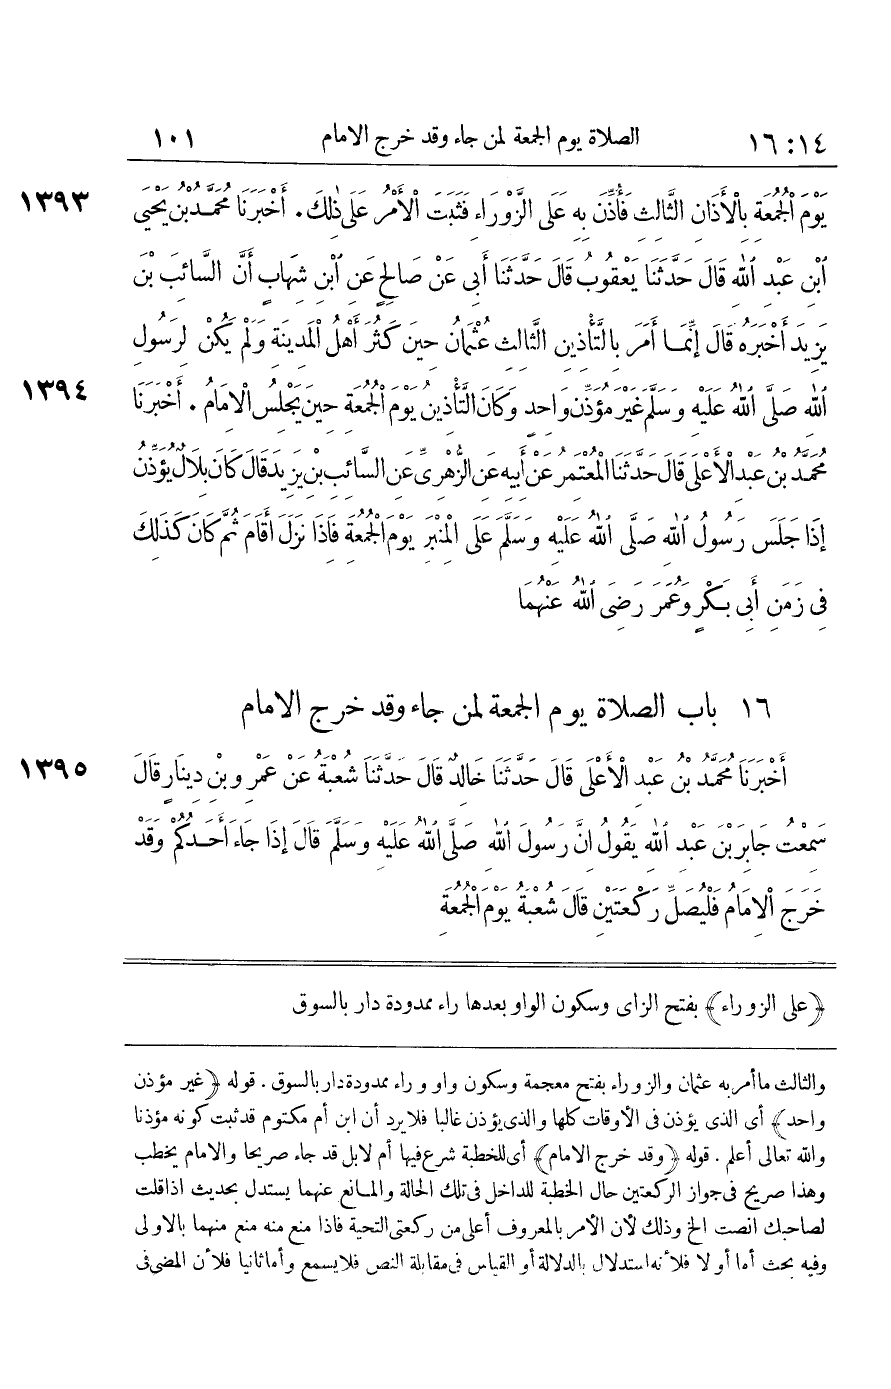 ١٤ : ١٦ الصلاة يوم الجمعة لمن جاء وقد خرج الامام ١٠١
يَوْمَ الْجُمُعَةِ بِالْأَذَانِ الثَّالِثِ فَأُذِّنَ بِهِ عَلَى الزَّوْرَاءِ فَثَبَتَ الْأَمْرُ عَلَى ذٰلِكَ . أَخْبَرَنَا مُحَمَّدُ بْنُ يَحْيَى ١٣٩٣
ابْنِ عَبْدِ اللهِ قَالَ حَدَّثَنَا يَعْقُوبُ قَالَ حَدَّثَنَا أَبِى عَنْ صَالِحٍ عَنِ ابْنِ شِهَابٍ أَنَّ السَّائِبَ بْنَ
يَزِيدَ أَخْبَرَهُ قَالَ إِنَّمَا أَمَرَ بِالتَّأْذِينِ الثَّالِثِ عُثْمَانُ حِينَ كَثُرَ أَهْلُ الْمَدِينَةِ وَلَمْ يَكُنْ لِرَسُولِ
اللهِ صَلَّى اللهُ عَلَيْهِ وَسَلَّمَ غَيْرُ مُؤَذِّنٍ وَاحِدٍ وَكَانَ التَّأْذِينُ يَوْمَ الْجُمُعَةِ حِينَ يَجْلِسُ الْاِمَامُ . أَخْبَرَنَا ١٣٩٤
مُحَمَّدُ بْنُ عَبْدِ الْأَعْلَى قَالَ حَدَّثَنَا الْمُعْتَمِرُ عَنْ أَبِيهِ عَنِ الزُّهْرِىِّ عَنِ السَّائِبِ بْنِ يَزِيدَ قَالَ كَانَ بِلَالٌ يُؤَذِّنُ
إِذَا جَلَسَ رَسُولُ اللهِ صَلَّى اللهُ عَلَيْهِ وَسَلَّمَ عَلَى الْمِنْبَرِ يَوْمَ الْجُمُعَةِ فَاذَا نَزَلَ أَقَامَ ثُمَّ كَانَ كَذٰلِكَ
فِى زَمَنِ أَبِى بَكْرٍ وَعُمَرَ رَضِىَ اللهُ عَنْهُمَا
١٦ باب الصلاة يوم الجمعة لمن جاء وقد خرج الامام
أَخْبَرَنَا مُحَمَّدُ بْنُ عَبْدِ الْأَعْلَى قَالَ حَدَّثَنَا خَالِدٌ قَالَ حَدَّثَنَا شُعْبَةُ عَنْ عَمْرِو بْنِ دِينَارٍ قَالَ ١٣٩٥
سَمِعْتُ جَابِرَ بْنَ عَبْدِ اللهِ يَقُولُ انَّ رَسُولَ اللهِ صَلَّى اللهُ عَلَيْهِ وَسَلَّمَ قَالَ إِذَا جَاءَ أَحَدُكُمْ وَقَدْ
خَرَجَ الْاِمَامُ فَلْيُصَلِّ رَكْعَتَيْنِ قَالَ شُعْبَةُ يَوْمَ الْجُمُعَةِ
﴿على الزوراء﴾ بفتح الزاى وسكون الواو بعدها راء ممدودة دار بالسوق
والثالث ما أمر به عثمان والزوراء بفتح معجمة وسكون واو وراء ممدودة دار بالسوق . قوله ﴿غير مؤذن
واحد﴾ أى الذى يؤذن فى الأوقات كلها والذى يؤذن غالبا فلا يرد أن ابن أم مكتوم قد ثبت كونه مؤذنا
والله تعالى أعلم . قوله ﴿وقد خرج الامام﴾ أى للخطبة شرع فيها أم لا بل قد جاء صريحا والامام يخطب
وهذا صريح فى جواز الركعتين حال الخطبة للداخل فى تلك الحالة والمانع عنهما يستدل بحديث اذا قلت
لصاحبك انصت الخ وذلك لأن الأمر بالمعروف أعلى من ركعتى التحية فاذا منع منه منع منهما بالاولى
وفيه بحث أما أولا فلأنه استدلال بالدلالة أو القياس فى مقابلة النص فلا يسمع وأما ثانيا فلأن المضى فى